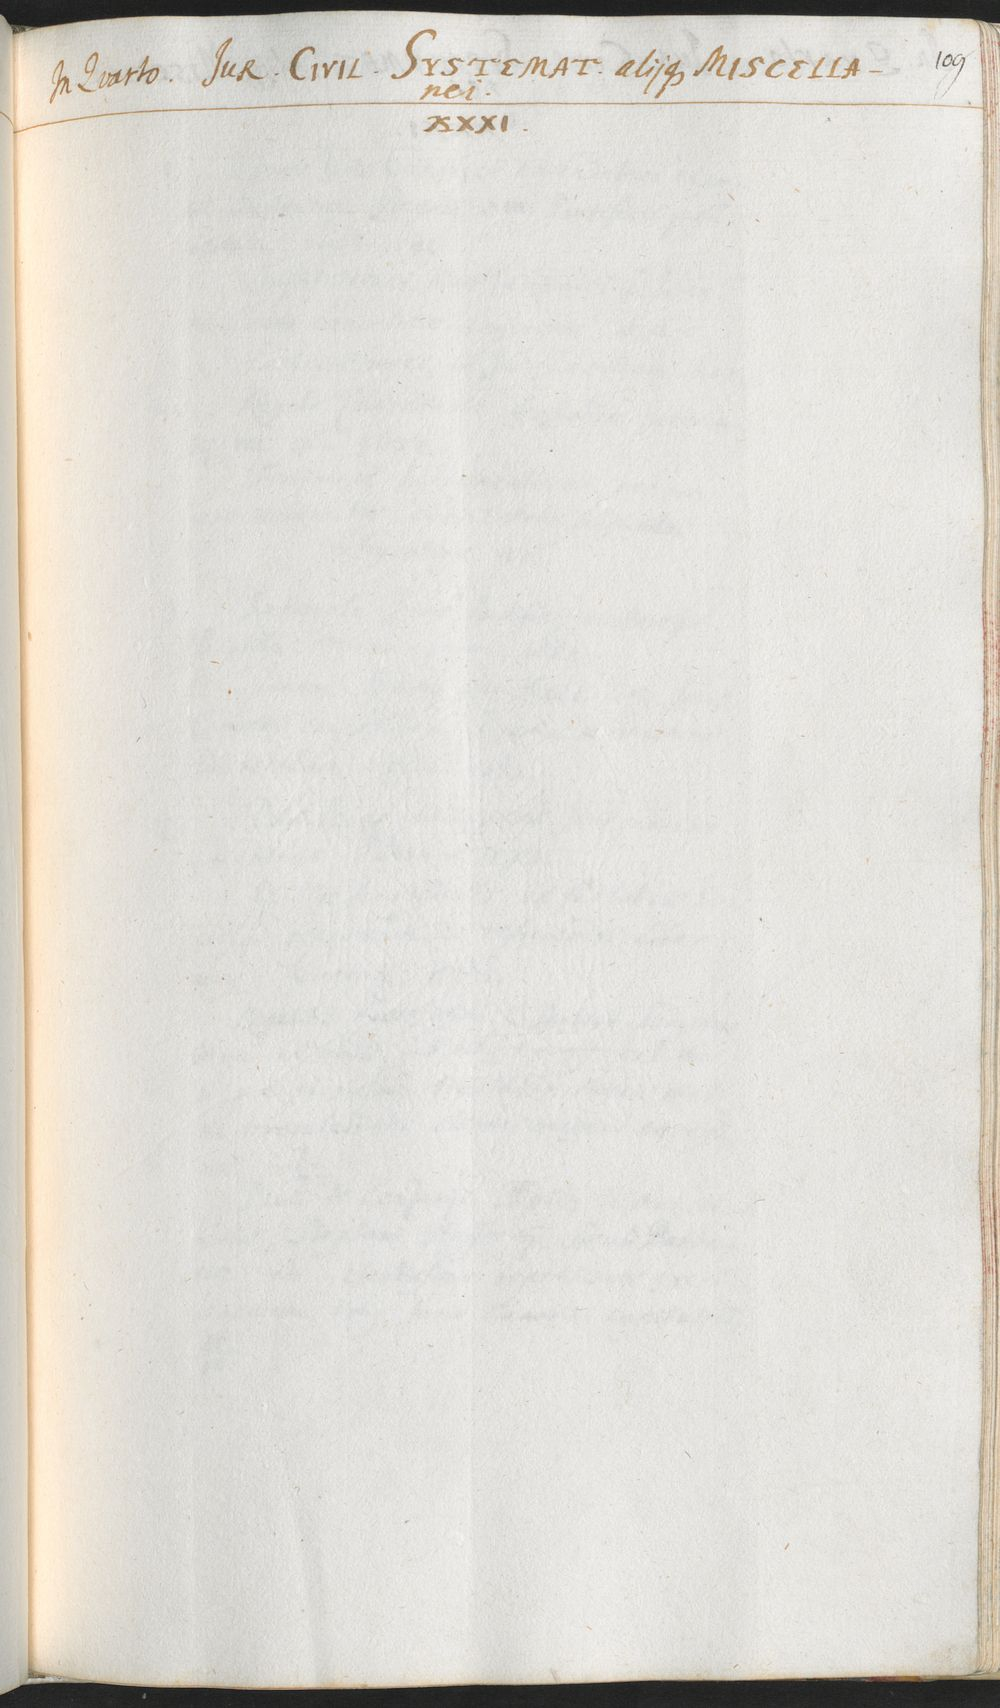 In Qvarto. JUR. CIVIL. SYSTEMAT. alijq MISCELLA-
nei.
109
XXXI.